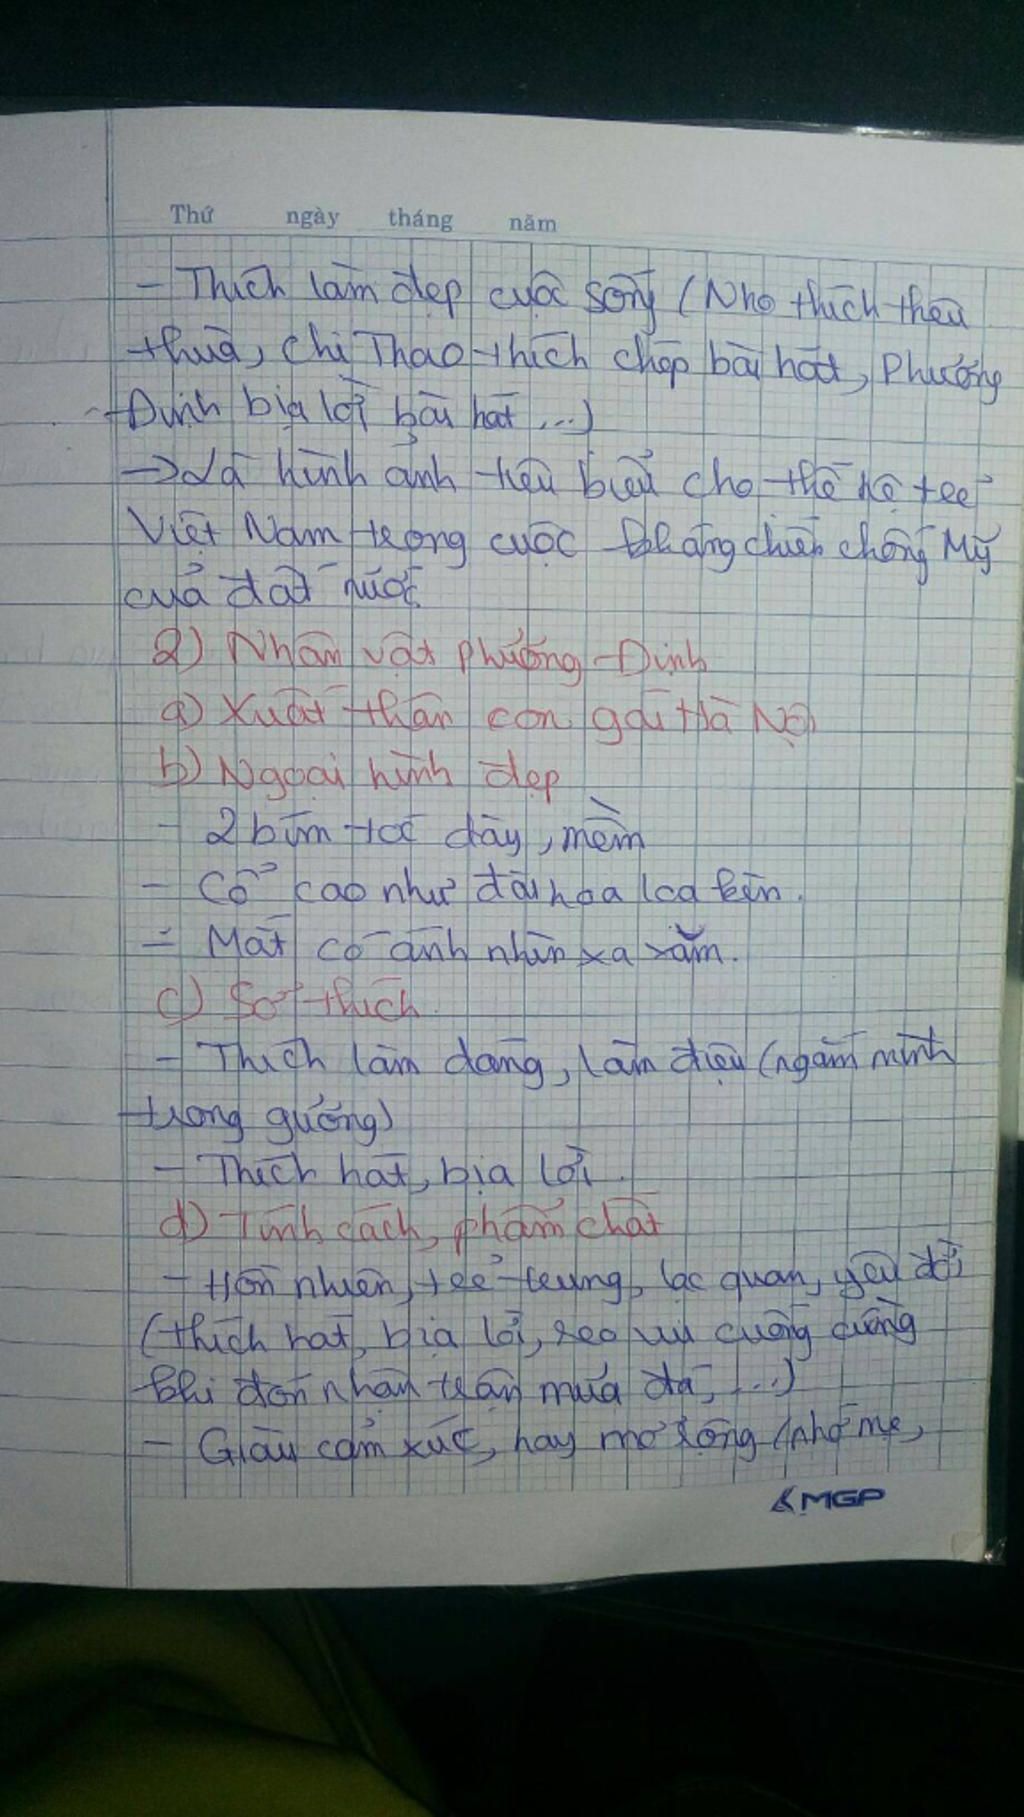 Thứ ngày tháng năm
- Thích làm đẹp cuộc sống (Nho thích thêu
thùa, chị Thao thích chép bài hát, Phương
Định bịa lời bài hát ...)
→ Là hình ảnh tiêu biểu cho thế hệ trẻ
Việt Nam trong cuộc kháng chiến chống Mỹ
của đất nước
2) Nhân vật Phương Định
a) Xuất thân con gái Hà Nội
b) Ngoại hình đẹp
- 2 bím tóc dày, mềm
- Cổ cao như đài hoa loa kèn.
- Mắt có ánh nhìn xa xăm.
c) Sở thích
- Thích làm dáng, làm điệu (ngắm mình
trong gương)
- Thích hát, bịa lời.
d) Tính cách, phẩm chất
- Hồn nhiên, trẻ trung, lạc quan, yêu đời
(thích hát, bịa lời, reo vui cuống cuồng
khi đón nhận trận mưa đá, ...)
- Giàu cảm xúc, hay mơ mộng (nhớ mẹ,
MGP